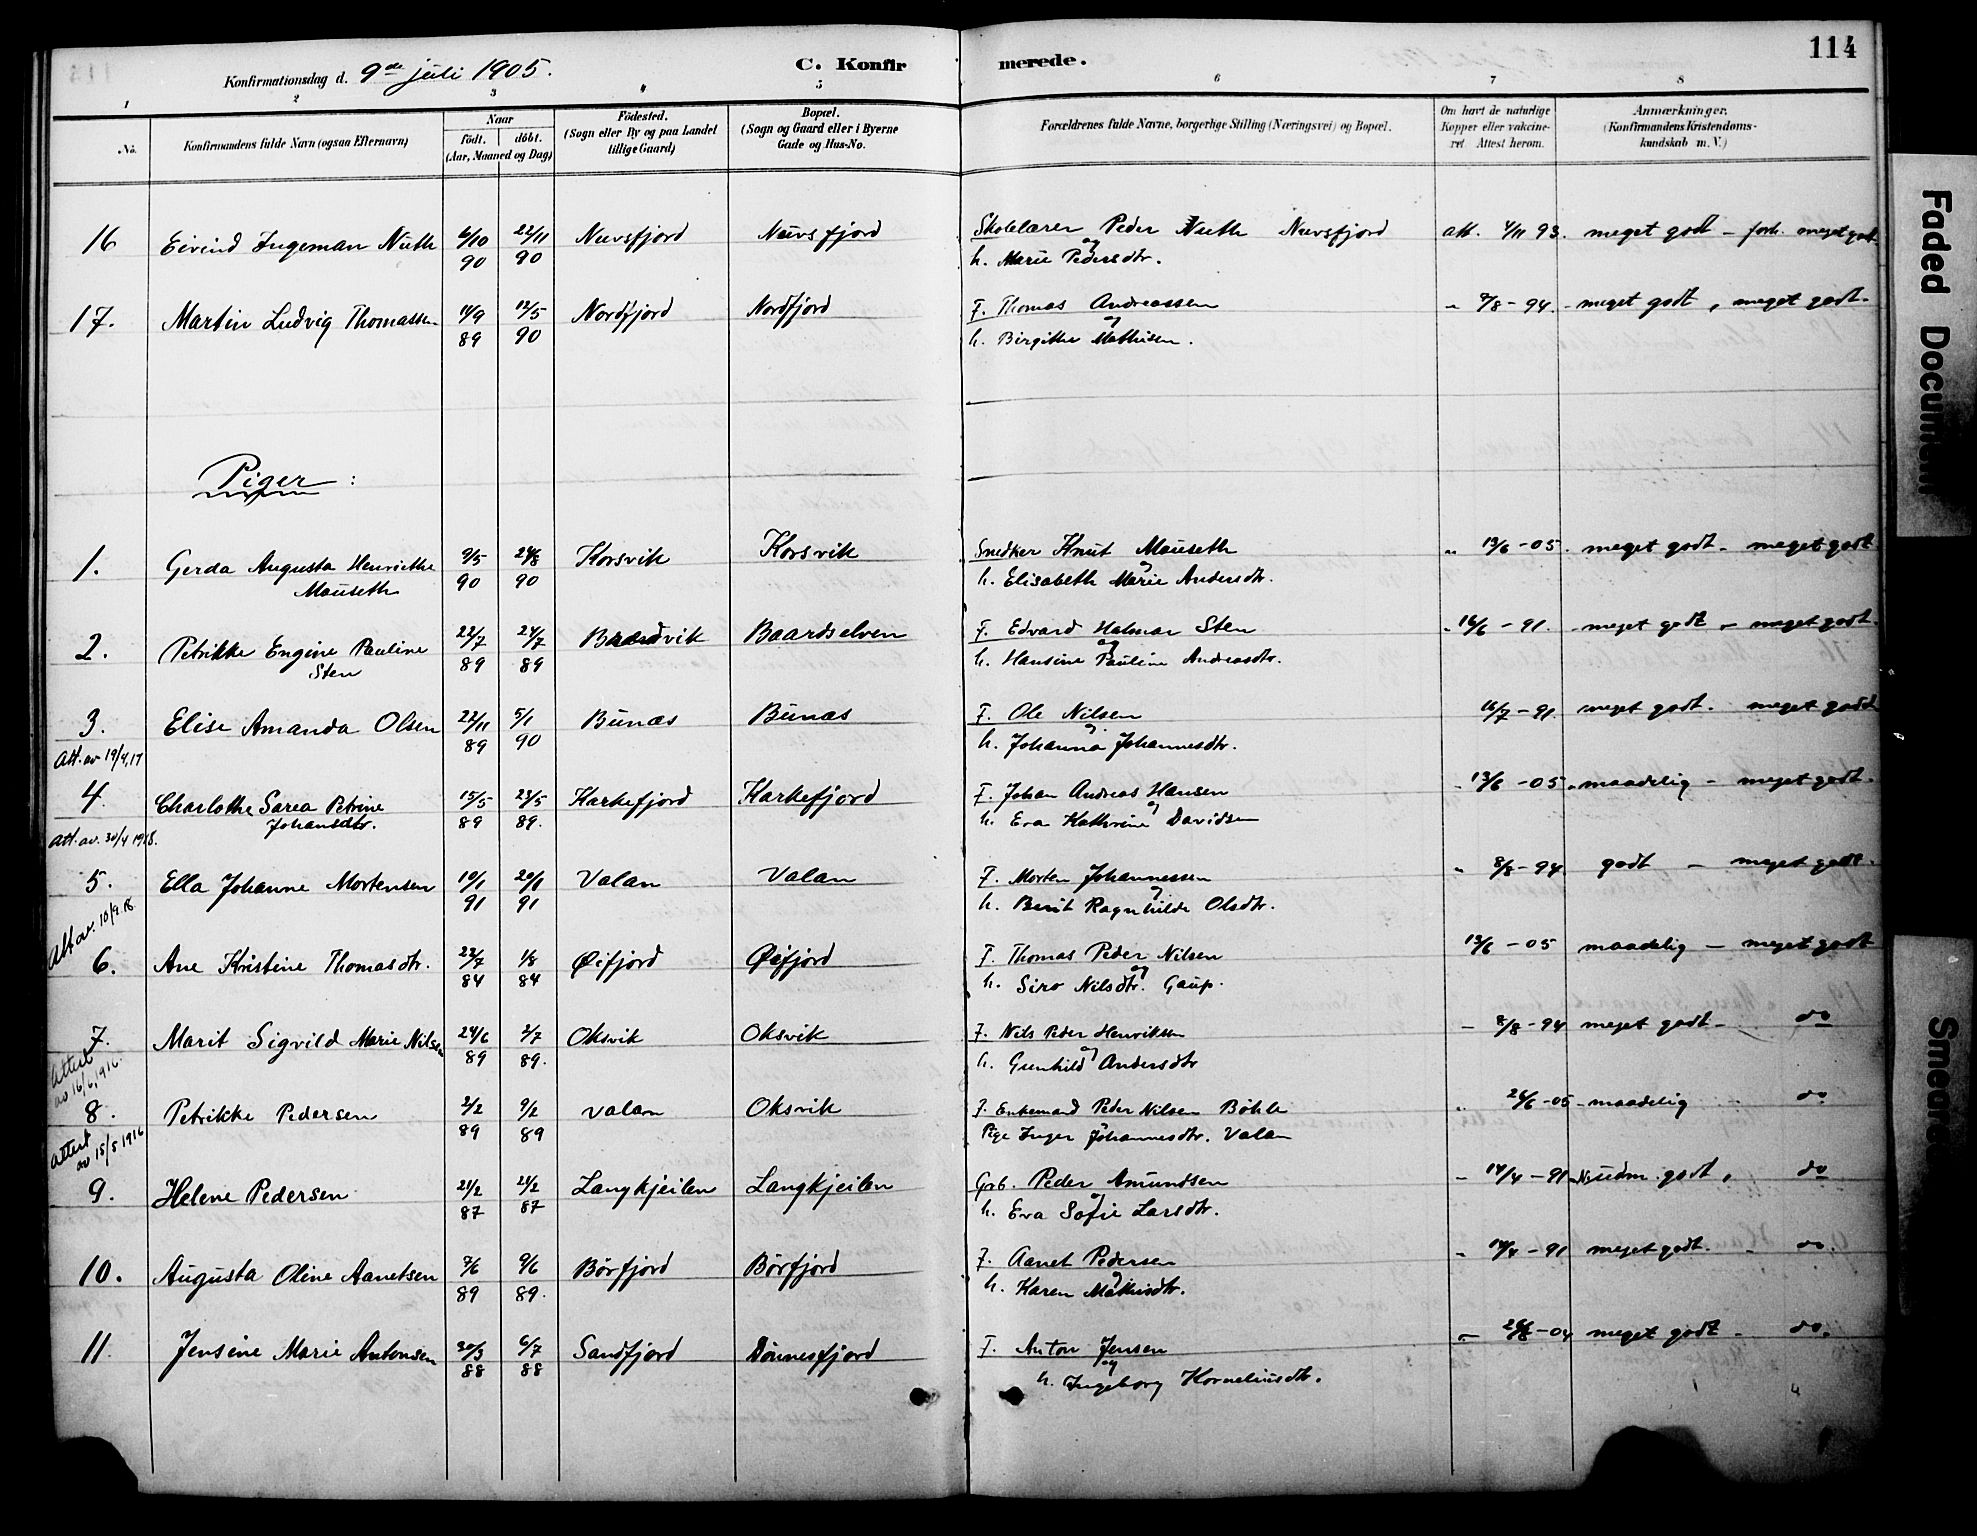 Konfirmationsdag d. 9de juli 1905.
C. Konfirmerede.
114
1 2 3 4 5 6 7 8
No.
Konfirmandens fulde Navn (ogsaa Efternavn)
Naar
födt. döbt.
(Aar, Maaned og Dag)
Födested.
(Sogn eller By og paa Landet
tillige Gaard)
Bopæl.
(Sogn og Gaard eller i Byerne
Gade og Hus-No.
Forældrenes fulde Navne, borgerlige Stilling (Næringsvei) og Bopæl.
Om havt de naturlige
Kopper eller vakcine-
ret. Attest herom.
Anmærkninger.
(Konfirmandens Kristendoms-
kundskab m. V.)
16 Eivind Ingeman Nuth 6/10 90 22/11 90 Nuvsfjord Nuvsfjord Skolelærer Peder Nuth Nuvsfjord att. 4/11 93. meget godt - forh. meget godt
og
h. Marie Pedersdtr.
17. Martin Ludvig Thomassen 14/9 89 12/5 90 Nordfjord Nordfjord F. Thomas Andreassen " 7/8 - 94. meget godt, meget godt.
og
h. Birgithe Mathisen.
Piger:
1. Gerda Augusta Henriette 9/5 90 24/8 90 Korsvik Korsvik Snedker Knut Mauseth " 13/6 - 05. meget godt - meget godt
Mauseth og
h. Elisabeth Marie Andersdtr.
2. Petrikke Engine Pauline 22/7 89 24/7 89 Baardselven F. Edvard Halmar Sten " 16/6 - 91. meget godt - meget godt.
Sten og
h. Hansine Pauline Andreasdtr.
3. Elise Amanda Olsen 22/11 89 5/1 90 Bunæs Bunæs F. Ole Nilsen 16/7 - 91. meget godt. meget godt
og
Att. av 19/4, 17 h. Johanna Johannesdtr.
4. Charlothe Sarea Petrine 15/5 89 23/5 89. Karkefjord Karkefjord F. Johan Andreas Hansen " 13/6 - 05. maadelig - meget godt.
Johansdtr. og
Att. av. 30/4 1918. h. Eva Kathrine Davidsen
5. Ella Johanne Mortensen 10/1 91 20/1 91 Valan Valan F. Morten Johannessen " 8/8 - 94 godt - meget godt.
og
h. Berit Ragnhilde Olsdtr.
Att av. 10/9.18.
6. Ane Kristine Thomasdtr. 22/7 84 1/8 84 Øifjord Øifjord F. Thomas Peder Nilsen 13/6 - 05 maadelig - meget godt
og
h. Siro Nilsdtr. Gaup.
7. Marit Sigvild Marie Nilsen 24/6 89 2/7 89. Oksvik Oksvik F. Nils Peder Henriksen - 8/8 - 94 meget godt - do
og
Attest av 16/6, 1916. h. Gunhild Andersdtr
8. Petrikke Pedersen 2/2 89 9/2 89 Valan Oksvik F. Enkemand Peder Nilsen Bøhle " 26/6 - 05 - maadelig - do
Attest av 15/5 1916 Pige Inger Johannesdtr. Valan
9. Helene Pedersen 21/2 87 21/2 87 Langkjeilen Langkjeilen Grb. Peder Amundsen - 14/4 - 91 godt, do
og
h. Eva Sofie Larsdtr.
10. Augusta Oline Aanetsen 7/6 89 9/6 89. Børfjord Børfjord F. Aanet Pedersen " 14/4 - 91 meget godt. - do.
og
h. Karen Mathisdtr.
11. Jensine Marie Antonsen 20/3 88 6/7 88 Sandfjord Dønnesfjord F. Anton Jensen - 04 meget godt - do.
og
h. Ingeborg Korneliusdtr.
Faded Document
Smeared